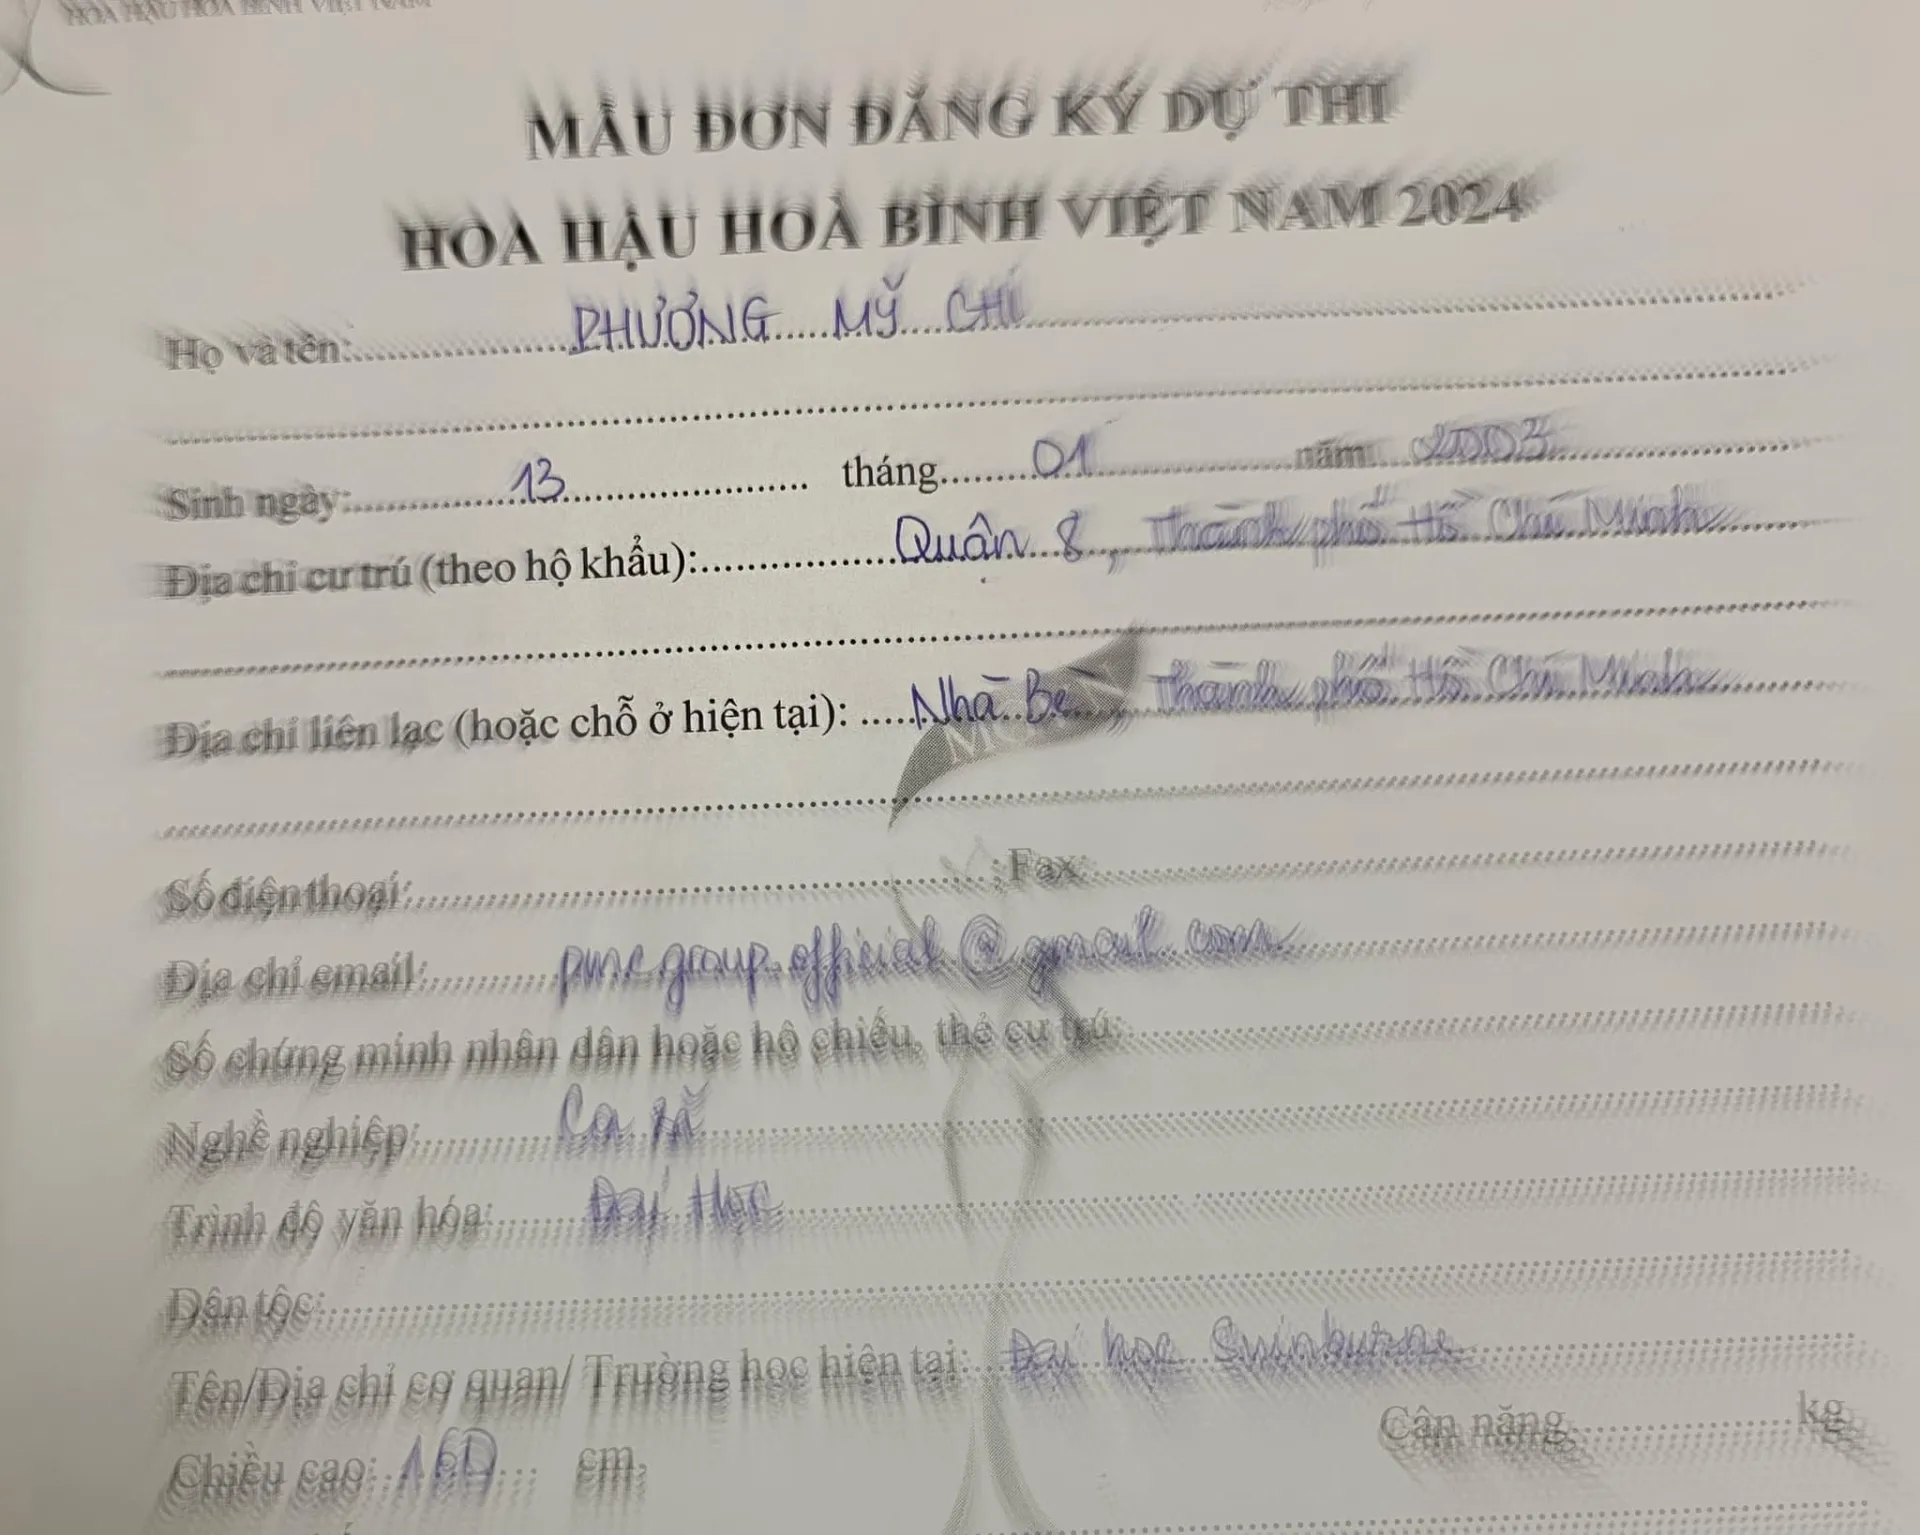 HOA HẬU HOÀ BÌNH VIỆT NAM
MẪU ĐƠN ĐĂNG KÝ DỰ THI
HOA HẬU HOÀ BÌNH VIỆT NAM 2024
Họ và tên: PHƯƠNG MỸ CHI
Sinh ngày: 13 tháng 01 năm 2003
Địa chỉ cư trú (theo hộ khẩu): Quận 8, Thành phố Hồ Chí Minh
Địa chỉ liên lạc (hoặc chỗ ở hiện tại): Nhà Bè, Thành phố Hồ Chí Minh
Số điện thoại: ; Fax:
Địa chỉ email: pmc.group.official@gmail.com
Số chứng minh nhân dân hoặc hộ chiếu, thẻ cư trú:
Nghề nghiệp: Ca sĩ
Trình độ văn hóa: Đại Học
Dân tộc:
Tên/Địa chỉ cơ quan/ Trường học hiện tại: Đại học Swinburne
Chiều cao: 160 cm, Cân nặng kg